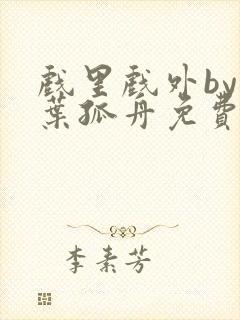 戲里戲外by
葉孤舟免費
李素芳